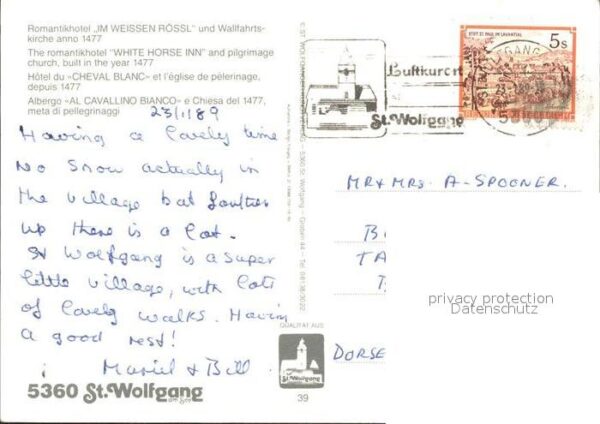 Romantikhotel „IM WEISSEN RÖSSL" und Wallfahrts-
kirche anno 1477
The romantikhotel "WHITE HORSE INN" and pilgrimage
church, built in the year 1477
Hôtel du «CHEVAL BLANC» et l'église de pèlerinage,
depuis 1477
Albergo «AL CAVALLINO BIANCO» e Chiesa del 1477,
meta di pellegrinaggi
23/1/89
Having a lovely time
No snow actually in
the village but further
up there is a lot.
St Wolfgang is a super
little village, with lots
of lovely walks. Having
a good rest!
Muriel & Bill
5360 St. Wolfgang
QUALITÄT AUS
St. Wolfgang
39
5360 St. Wolfgang
STIFT ST. PAUL IM LAVANTTAL
5s
Luftkurort
St. Wolfgang
MR & MRS. A. SPOONER.
TA
DORSE
privacy protection
Datenschutz